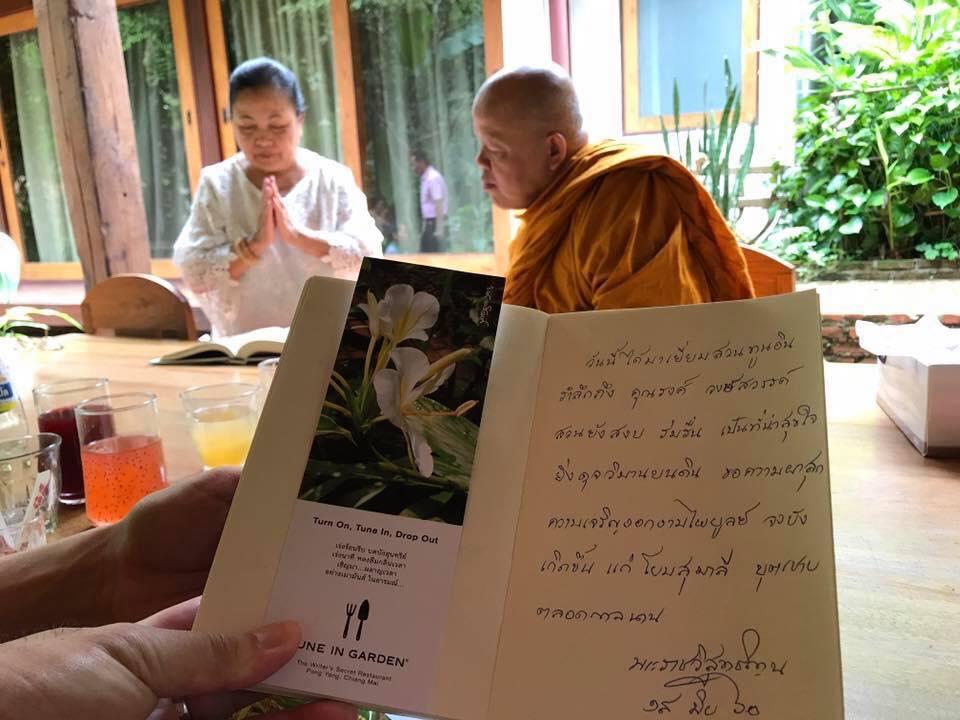 Turn On, Tune In, Drop Out
เร่งร้อนรีบ บดบังสุนทรีย์
เร่งนาที หลงลืมกลืนเวลา
เชิญมา...ผลาญเวลา
อย่างเมามันส์ ในอารมณ์...
UNE IN GARDEN®
The Writer's Secret Restaurant
Pong Yang, Chiang Mai
วันนี้ได้มาเยี่ยมสวนทูนอิน
รำลึกถึง คุณรงค์ วงษ์สวรรค์
สวนยังสงบ ร่มรื่น เป็นที่น่าสุขใจ
ยิ่งดุจวิมานบนดิน ขอความผาสุก
ความเจริญงอกงามไพบูลย์ จงบัง
เกิดขึ้น แก่ โยมสุมาลี
ตลอดกาลนาน